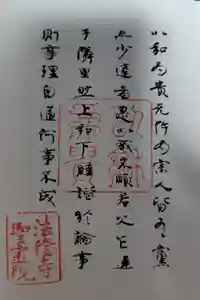 以和為貴无忤為宗人皆有黨
亦少達者是以或不順君父乍違
于隣里然上和下睦諧於論事
則事理自通何事不成
法隆寺
聖霊院